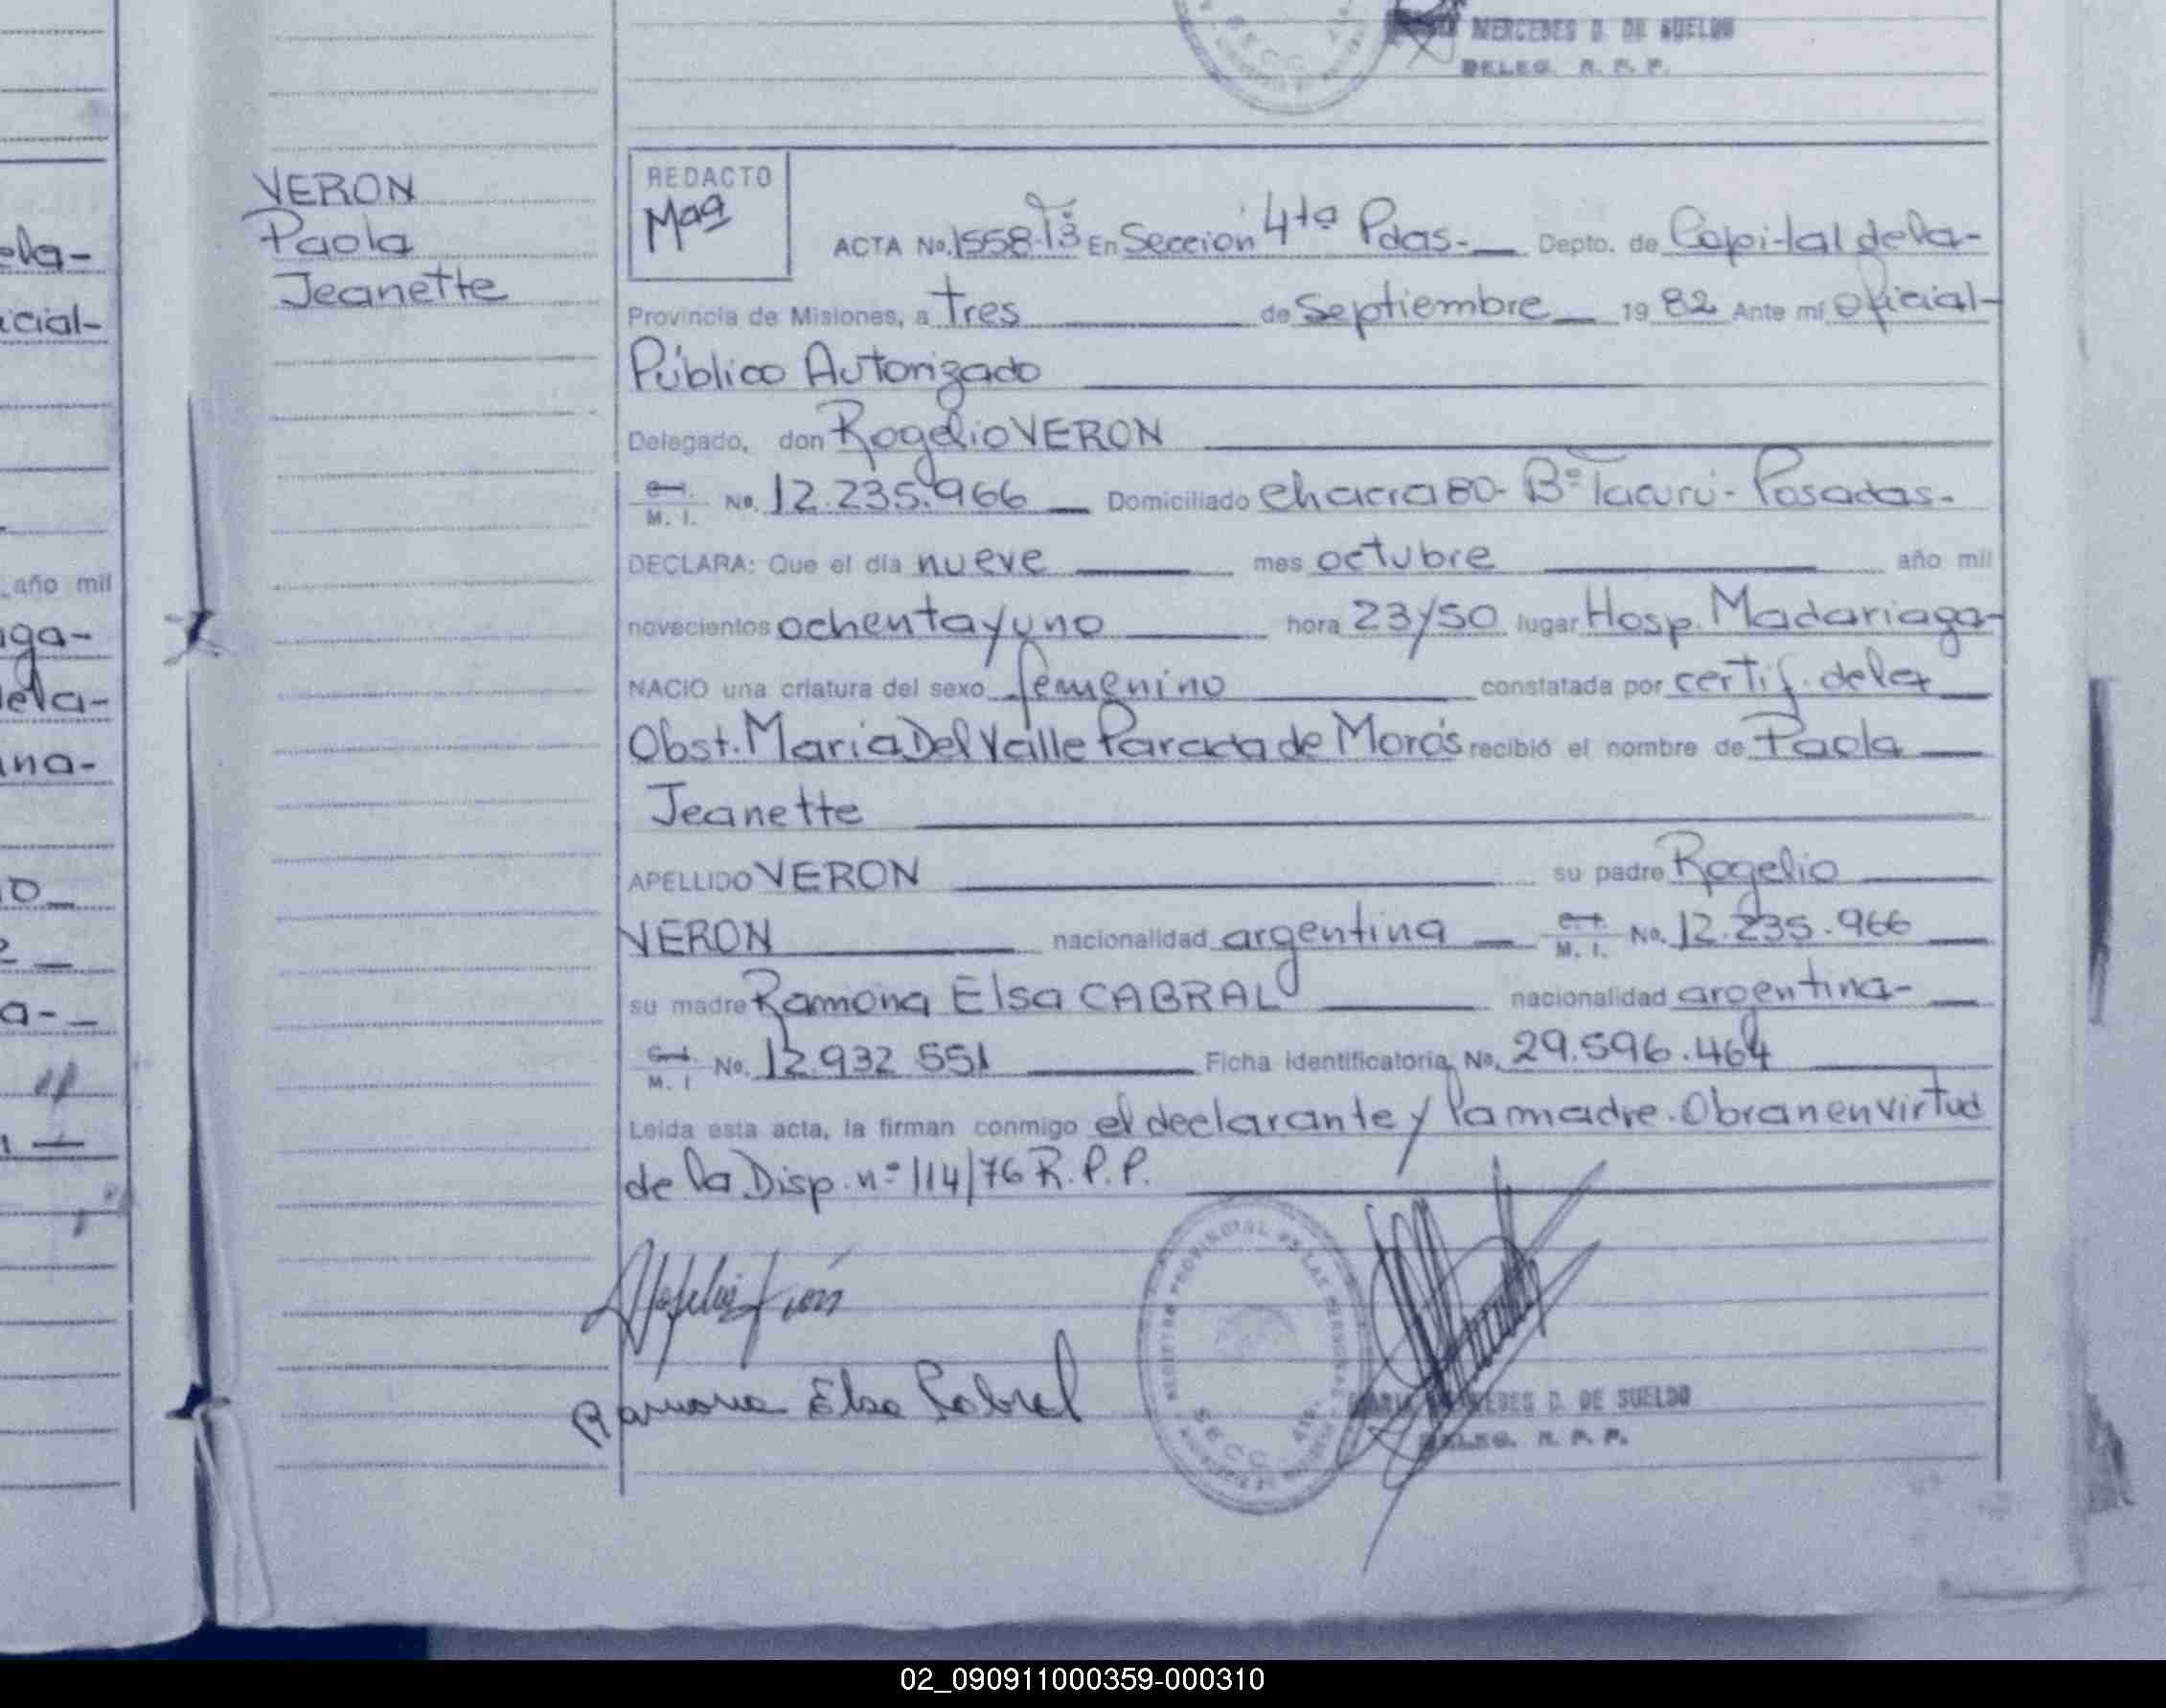 MERCEDES D. DE SUELDO
DELEG. R. P. P.
SECC
VERON
Paola
Jeanette
REDACTO
Maq
ACTA No. 1558-Tº3 En Seccion 4ta Pdas.- Depto. de Capital de la-
Provincia de Misiones, a tres de Septiembre 1982 Ante mí oficial-
Público Autorizado
Delegado, don Rogelio VERON
C.I. M. I. No. 12.235.966 Domiciliado chacra 80- Bº Tacurú- Posadas.
DECLARA: Que el día nueve mes octubre año mil
novecientos ochenta y uno hora 23/50 lugar Hosp. Madariaga-
NACIO una criatura del sexo femenino constatada por certif. de la
Obst. Maria Del Valle Parada de Morás recibió el nombre de Paola
Jeanette
APELLIDO VERON su padre Rogelio
VERON nacionalidad argentina C.I. M. I. No. 12.235.966
su madre Ramona Elsa CABRAL nacionalidad argentina-
C.I. M. I No. 12.932 551 Ficha identificatoria No. 29.596.464
Leída esta acta, la firman conmigo el declarante y la madre. Obran en virtud
de la Disp. nº 114/76 R.P.P.
Ramona Elsa Cabral
REGISTRO PROVINCIAL DE LAS PERSONAS
SECC 4ta
MERCEDES D. DE SUELDO
DELEG. R. P. P.
ela-
icial-
año mil
ga-
dela-
ina-
02_090911000359-000310